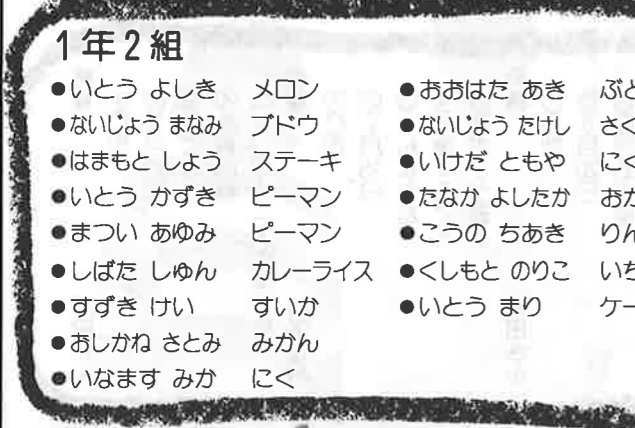 1年2組
●いとう よしき メロン
●ないじょう まなみ ブドウ
●はまもと しょう ステーキ
●いとう かずき ピーマン
●まつい あゆみ ピーマン
●しばた しゅん カレーライス
●すずき けい すいか
●おしかね さとみ みかん
●いなます みか にく
●おおはた あき
●ないじょう たけし
●いけだ ともや
●たなか よしたか
●こうの ちあき
●くしもと のりこ
●いとう まり